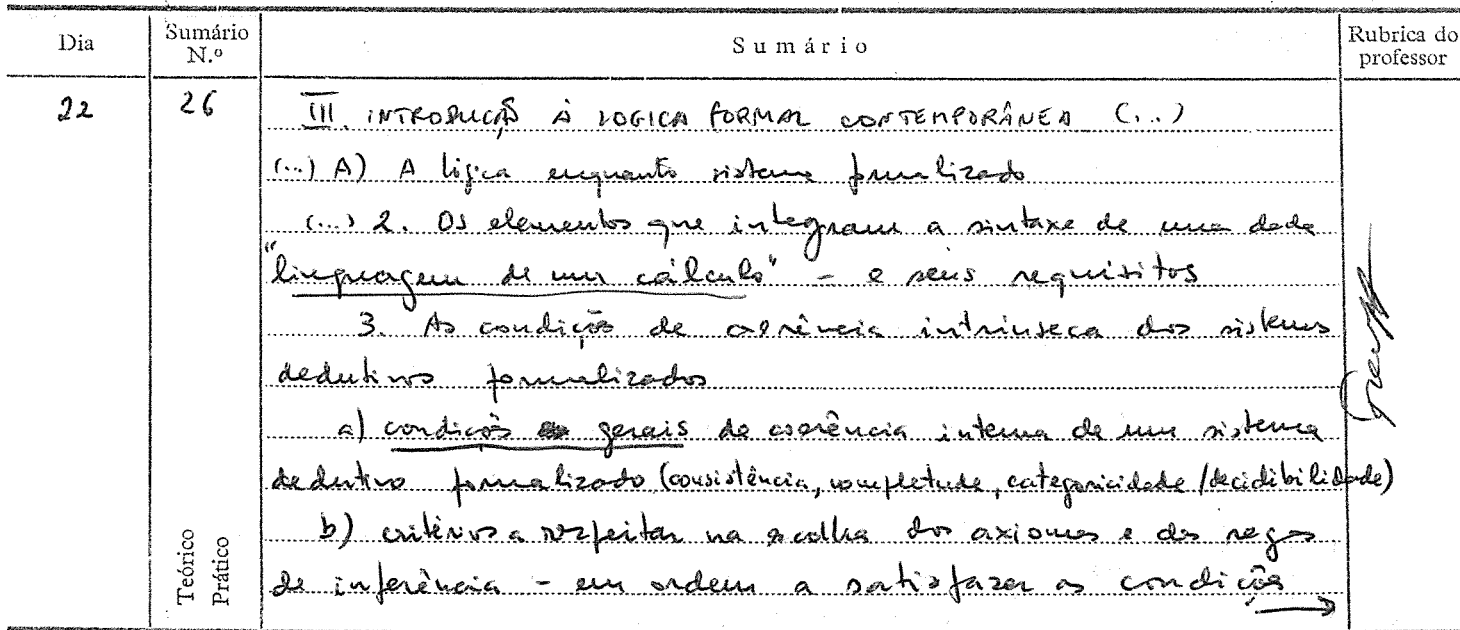 Dia
Sumário N.º
Sumário
Rubrica do professor
22
26
III. INTRODUÇÃO À LOGICA FORMAL CONTEMPORÂNEA (...)
(...) A) A lógica enquanto sistema formalizado
(...) 2. Os elementos que integram a sintaxe de uma dada
"linguagem de um cálculo" - e seus requisitos
3. As condições de coerência intrínseca dos sistemas
dedutivos formalizados
a) condições gerais de coerência interna de um sistema
dedutivo formalizado (consistência, completude, categoricidade/decidibilidade)
b) critérios a respeitar na escolha dos axiomas e das regras
de inferência - em ordem a satisfazer as condições
Teórico
Prático